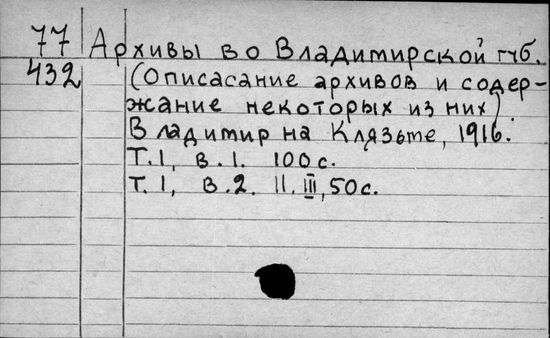 77 Архивы во Владимирской губ.
432 (Описасание архивов и содер-
жание некоторых из них)
Владимир на Клязьме, 1916.
Т.1, в.1. 100 с.
Т.1, в.2. II, III, 50 с.